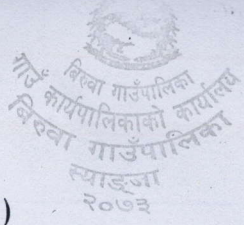 बिरुवा गाउँपालिका
गाउँ कार्यपालिकाको कार्यालय
बिरुवा गाउँपालिका
स्याङ्जा
२०७३
)